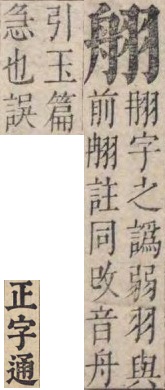 䎃字之譌弱羽與
前䎃註同攺音舟
引玉篇
急也誤
正字通